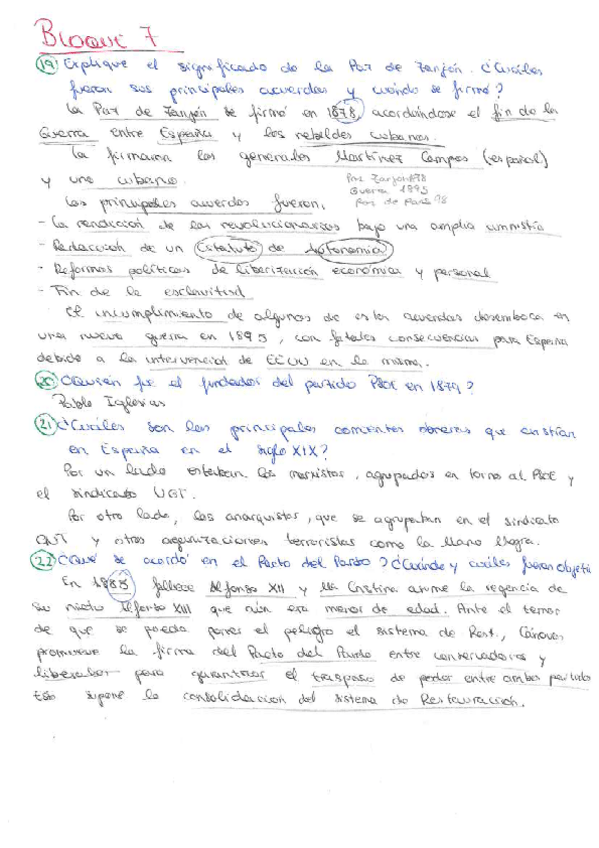 Bloque 7
19 Explique el significado de la Paz de Zanjón. ¿Cuáles
fueron sus principales acuerdos y cuándo se firmó?
La Paz de Zanjón se firmó en 1878, acordándose el fin de la
Guerra entre España y los rebeldes cubanos.
La firmaron los generales Martínez Campos (español)
y uno cubano.
Paz Zanjón 78
Guerra 1895
Paz de París 98
Los principales acuerdos fueron,
- La rendición de los revolucionarios bajo una amplia amnistía
- Redacción de un Estatuto de Autonomía
- Reformas políticas de liberización económica y personal
- Fin de la esclavitud
El incumplimiento de algunos de estos acuerdos desemboca en
una nueva guerra en 1895, con fatales consecuencias para España
debido a la intervención de EEUU en la misma.
20 ¿Quién fue el fundador del partido PSOE en 1879?
Pablo Iglesias
21 ¿Cuáles son las principales corrientes obreras que existían
en España en el siglo XIX?
Por un lado estaban los marxistas, agrupados en torno al PSOE y
el sindicato UGT.
Por otro lado, los anarquistas, que se agrupaban en el sindicato
CNT y otras organizaciones terroristas como la Mano Negra.
22 ¿Qué se acordó en el Pacto del Pardo? ¿Cuándo y cuáles fueron objeti
En 1885 fallece Alfonso XII y Mª Cristina asume la regencia de
su Alfonso XIII que aún era menor de edad. Ante el temor
de que se pueda poner el peligro el sistema de Rest., Cánovas
promueve la firma del Pacto del Pardo entre conservadores y
liberales para garantizar el traspaso de poder entre ambos partidos
Esto supone la consolidación del sistema de Restauración.